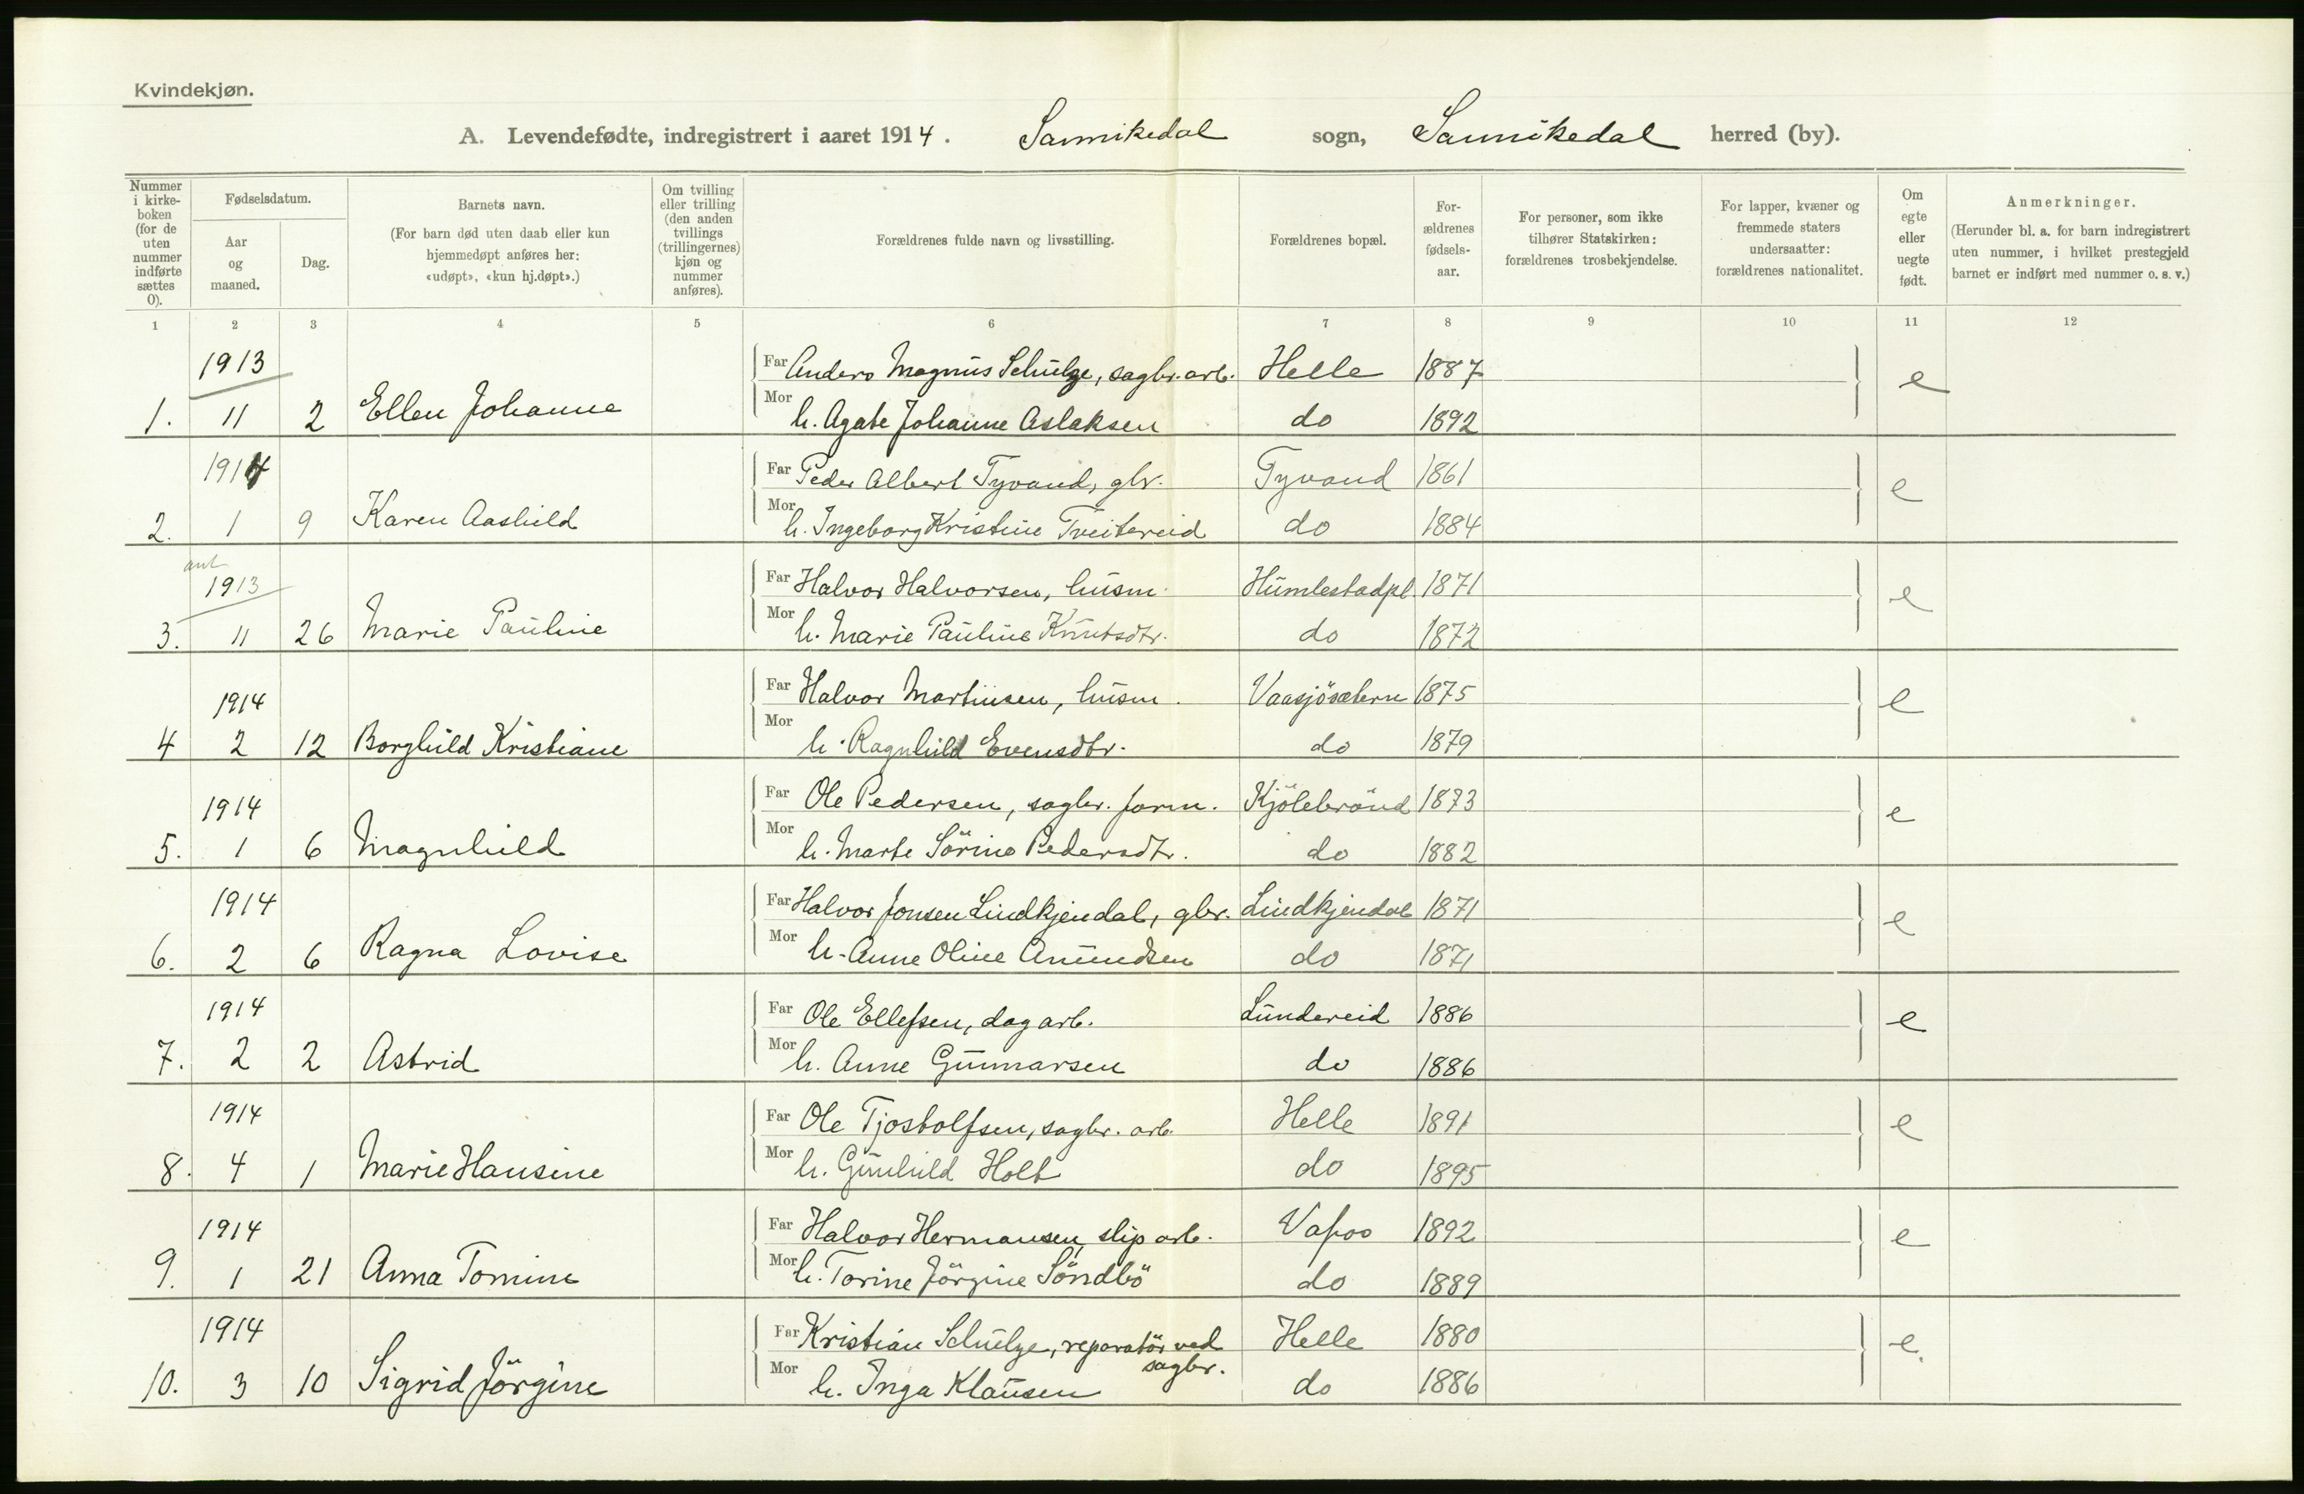 Kvindekjøn.
A. Levendefødte, indregistrert i aaret 1914. Sannikedal sogn, Sannikedal herred (by).
Nummer i kirke-boken (for de uten nummer indførte sættes 0).
Fødselsdatum.
Aar og maaned.
Dag.
Barnets navn.
(For barn død uten daab eller kun hjemmedøpt anføres her: «udøpt», «kun hj.døpt».)
Om tvilling eller trilling (den anden tvillings (trillingernes) kjøn og nummer anføres).
Forældrenes fulde navn og livsstilling.
Forældrenes bopæl.
For-ældrenes fødsels-aar.
For personer, som ikke tilhører Statskirken: forældrenes trosbekjendelse.
For lapper, kvæner og fremmede staters undersaatter: forældrenes nationalitet.
Om egte eller uegte født.
Anmerkninger.
(Herunder bl. a. for barn indregistrert uten nummer, i hvilket prestegjeld barnet er indført med nummer o. s. v.)
1 2 3 4 5 6 7 8 9 10 11 12
1913 Far Anders Magnus Schulze, sagbr. arb. Helle 1887 e
1. 11 2 Ellen Johanne Mor h. Agate Johanne Aslaksen do 1892
1914 Far Peder Albert Tyvand, gbr. Tyvand 1861 e
2. 1 9 Karen Aashild Mor h. Ingeborg Kristine Tveitereid do 1884
ant
1913 Far Halvor Halvorsen, husm. Humlestadpl. 1871 e
3. 11 26 Marie Pauline Mor h. Marie Pauline Knutsdtr. do 1872
1914 Far Halvor Martinsen, husm. Vaasjösætern 1875 e
4 2 12 Borghild Kristiane Mor h. Ragnhild Evensdtr. do 1879
1914 Far Ole Pedersen, sagbr. form. Kjölebrönd 1873 e
5. 1 6 Magnhild Mor h. Marte Sörine Pedersdtr. do 1882
1914 Far Halvor Jonsen Lindkjendal, gbr. Lindkjendal 1871 e
6. 2 6 Ragna Lovise Mor h. Anne Oline Amundsen do 1871
1914 Far Ole Ellefsen, dagarb. Lundereid 1886 e
7. 2 2 Astrid Mor h. Anne Gunnarsen do 1886
1914 Far Ole Tjostolfsen, sagbr. arb. Helle 1891 e
8. 4 1 Marie Hansine Mor h. Gunhild Holt do 1895
1914 Far Halvor Hermansen, slip arb. Vafoo 1892 e
9. 1 21 Anna Tomine Mor h. Torine Jörgine Söndbö do 1889
1914 Far Kristian Schulze, reparatör ved sagbr. Helle 1880 e.
10. 3 10 Sigrid Jörgine Mor h. Inga Klausen do 1886